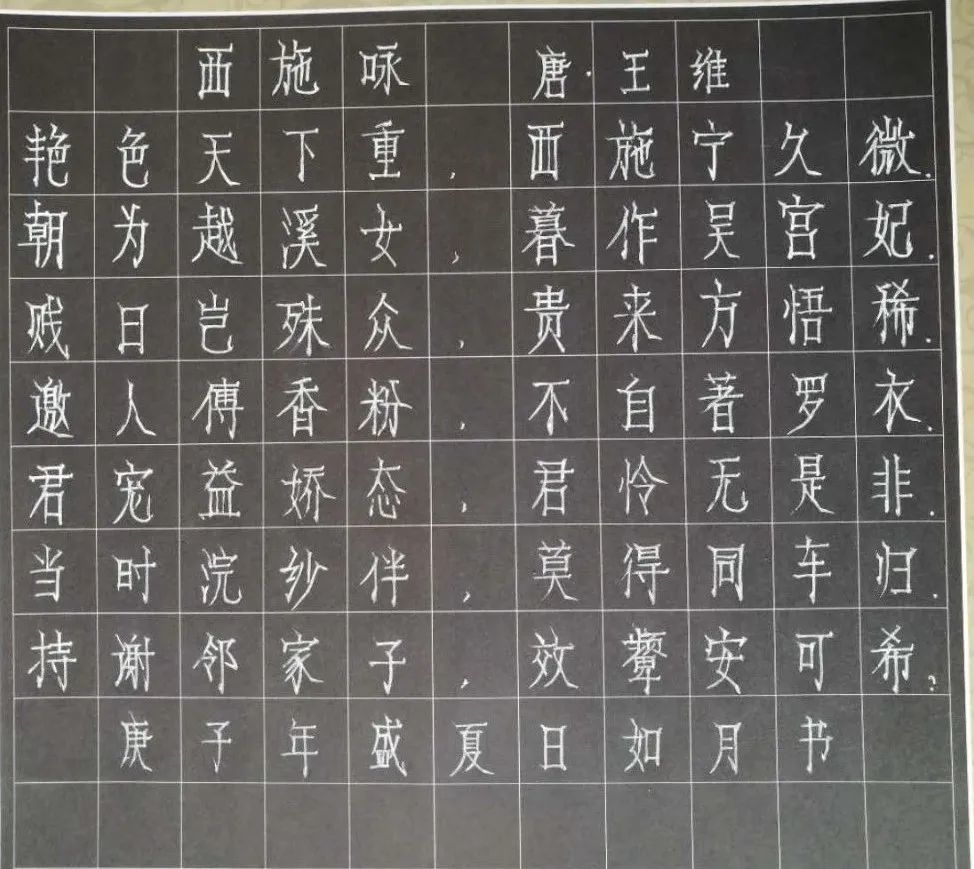 西施咏 唐·王维
艳色天下重,西施宁久微.
朝为越溪女,暮作吴宫妃.
贱日岂殊众,贵来方悟稀.
邀人傅香粉,不自著罗衣.
君宠益娇态,君怜无是非.
当时浣纱伴,莫得同车归.
持谢邻家子,效颦安可希?
庚子年盛夏日如月书